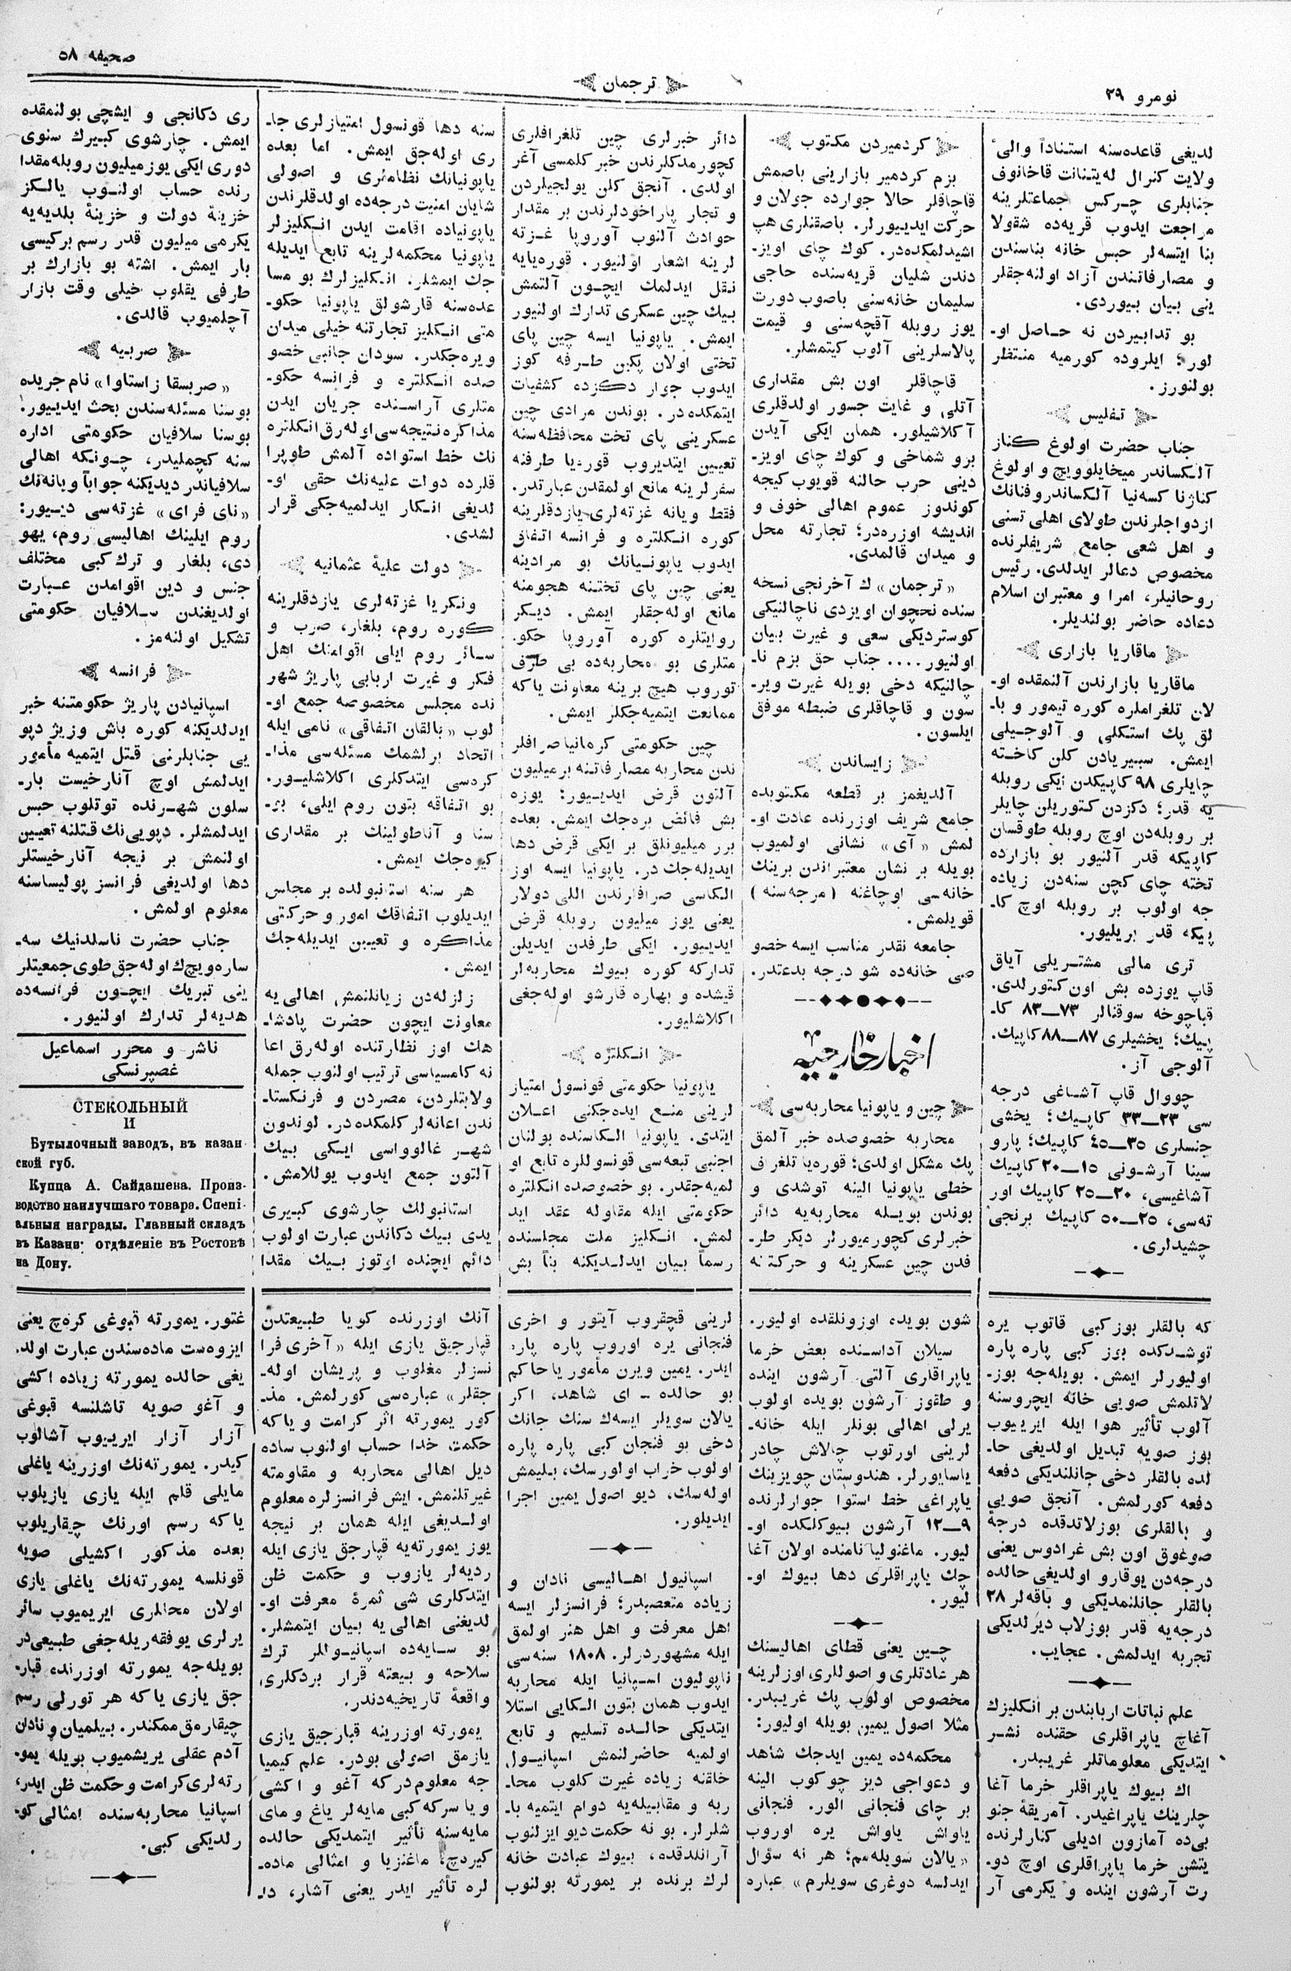 نومرو ۲۹
ترجمان
صحيفه ۵۸
لديغى قاعده‌سنه استناداً والى
ولايت كنرال له‌يتنانت قاخانوف
جنابلرى چركس جماعتلرينه
مراجعت ايدوب قريه‌ده شقولا
بنا ايتسه‌لر حبس خانه بناسندن
و مصارفاتندن آزاد اولنه‌جقلر
ينى بيان بيوردى.
بو تدابيردن نه حاصل او-
لور؟ ايلروده كورميه منتظر
بولنورز.
تفليس
جناب حضرت اولوغ كناز
آلكساندر ميخايلوويچ و اولوغ
كنازنا كسه‌نيا آلكساندروفنانك
ازدواجلرندن طولاى اهلى تسنى
و اهل شعى جامع شريفلرنده
مخصوص دعالر ايدلدى. رئيس
روحانيلر، امرا و معتبران اسلام
دعاده حاضر بولنديلر.
ماقاريا بازارى
ماقاريا بازارندن آلنمقده او-
لان تلغراملره كوره تيمور و با-
لق پك استكلى و آلوجيلى
ايمش. سيبريادن كلن كاخته
چايلرى ۹۸ كاپيكدن ايكى روبله
يه قدر؛ دكزدن كتوريلن چايلر
بر روبله‌دن اوچ روبله طوقسان
كاپيكه قدر آلنيور بو بازارده
تخته چاى كچن سنه‌دن زياده
جه اولوب بر روبله اوچ كا-
پيكه قدر بريليور.
ترى مالى مشتريلى آياق
قاپ يوزده بش اون كتورلدى.
قباچوخه سوقنالر ۷۳—۸۳ كا-
پيك؛ يخشيلرى ۸۷—۸۸ كاپيك.
آلوجى آز.
چووال قاپ آشاغى درجه
سى ۲۳—۳۳ كاپيك؛ يخشى
جنسلرى ۳۵—۴۵ كاپيك؛ پارو
سينا آرشونى ۱۵—۲۰ كاپيك
آشاغيسى، ۲۰—۲۵ كاپيك اور
ته‌سى، ۲۵—۵۰ كاپيك برنجى
چشيدلرى.
كردميردن مكتوب
بزم كردمير بازارينى باصمش
قاچاقلر حالا جوارده جولان و
حركت ايديبورلر. باصقنلرى هپ
اشيدلمكده‌در. كوك چاى اويز-
دندن شليان قريه‌سنده حاجى
سليمان خانه‌سنى باصوب دورت
يوز روبله آقچه‌سنى و قيمت
پالاسلرينى آلوب كيتمشلر.
قاچاقلر اون بش مقدارى
آتلى و غايت جسور اولدقلرى
آكلاشيلور. همان ايكى آيدن
برو شماخى و كوك چاى اويز-
دينى حرب حالنه قويوب كيجه
كوندوز عموم اهالى خوف و
انديشه اوزره‌در؛ تجارته محل
و ميدان قالمدى.
«ترجمان» ك آخرنجى نسخه
سنده نخچوان اويزدى ناچالنيكى
كوستردىكى سعى و غيرت بيان
اولنيور.... جناب حق بزم نا-
چالنيكه دخى بويله غيرت وير-
سون و قاچاقلرى ضبطه موفق
ايلسون.
زايساندن
آلديغمز بر قطعه مكتوبده
جامع شريف اوزرنده عادت او-
لمش «آى» نشانى اولميوب
بويله بر نشان معتبراندن برينك
خانه‌سى اوچاغنه (مرجه‌سنه)
قويلمش.
جامعه نقدر مناسب ايسه خصو
صى خانه‌ده شو درجه بدعتدر.
اخبار خارجيه
چين و ياپونيا محاربه‌سى
محاربه خصوصده خبر آلمق
پك مشكل اولدى؛ قوره‌يا تلغراف
خطى ياپونيا الينه توشدى و
بوندن بويله محاربه‌يه دائر
خبرلرى كچورميورلر ديكر طر-
فدن چين عسكرينه و حركتنه
دائر خبرلرى چين تلغرافلرى
كچورمدكلرندن خبر كلمسى آغر
اولدى. آنجق كلن يولجيلردن
و تجار پاراخودلرندن بر مقدار
حوادث آلنوب آوروپا غزته
لرينه اشعار اولنيور. قوره‌يايه
نقل ايدلمك ايچون آلتمش
بيك چين عسكرى تدارك اولنيور
ايمش. ياپونيا ايسه چين پاى
تختى اولان پكين طرفه كوز
ايدوب جوار دكزده كشفيات
ايتمكده‌در. بوندن مرادى چين
عسكرينى پاى تخت محافظه‌سنه
تعيين ايتديروب قوريا طرفنه
سفرلرينه مانع اولمقدن عبارتدر.
فقط ويانه غزته‌لرى يازدقلرينه
كوره انكلتره و فرانسه اتفاق
ايدوب ياپونيانك بو مرادينه
يعنى چين پاى تختنه هجومنه
مانع اوله‌جقلر ايمش. ديكر
روايتلره كوره آوروپا حكو-
متلرى بو محاربه‌ده بى طرف
توروب هيچ برينه معاونت ياكه
ممانعت ايتميه‌جكلر ايمش.
چين حكومتى كرمانيا صرافلر
ندن محاربه مصارفاتنه برميليون
آلتون قرض ايديور؛ يوزه
بش فائض بره‌جك ايمش. بعده
برر ميليونلق بر ايكى قرض دها
ايديله‌جك در. ياپونيا ايسه اوز
الكاسى صرافلرندن اللى دولار
يعنى يوز ميليون روبله قرض
ايديور. ايكى طرفدن ايديلن
تداركه كوره بيوك محاربه‌لر
قيشده و بهاره قارشو اوله‌جغى
اكلاشليور.
انكلتره
ياپونيا حكومتى قونسول امتياز
لرينى منع ايده‌جكنى اعلان
ايتدى. ياپونيا الكاسنده بولنان
اجنبى تبعه‌سى قونسوللره تابع او
لميه‌جقدر. بو خصوصده انكلتره
حكومتى ايله مقاوله عقد ايد
لمش. انكليز ملت مجلسنده
رسماً بيان ايدلديكنه بناً بش
سنه دها قونسول امتيازلرى جا-
رى اوله‌جق ايمش. اما بعده
ياپونيانك نظاماتى و اصولى
شايان امنيت درجه‌ده اولدقلرندن
ياپونياده اقامت ايدن انكليزلر
ياپونيا محكمه‌لرينه تابع ايديله
جك ايمشلر. انكليزلرك بو مسا
عده‌سنه قارشولق ياپونيا حكو-
متى انكليز تجارتنه خيلى ميدان
ويره‌جكدر. سودان جانبى خصو
صده انكلتره و فرانسه حكو-
متلرى آراسنده جريان ايدن
مذاكره نتيجه‌سى اوله‌رق انكلتره
نك خط استواده آلمش طوپرا
قلرده دولت عليه‌نك حقى او-
لديغى انكار ايدلميه‌جكى قرار
لشدى.
دولت عليهٔ عثمانيه
ونكريا غزته‌لرى يازدقلرينه
كوره روم، بلغار، صرب و
سائر روم ايلى اقوامنك اهل
فكر و غيرت اربابى پاريژ شهر
نده مجلس مخصوصه جمع او-
لوب «بالقان اتفاقى» نامى ايله
اتحاد برلشمك مسئله‌سى مذا-
كره‌سى ايتدكلرى اكلاشليور.
بو اتفاقه بتون روم ايلى، بو-
سنا و آناطولينك بر مقدارى
كيره‌جك ايمش.
هر سنه استانبولده بر مجلس
ايديلوب اتفاقك امور و حركتى
مذاكره و تعيين ايديله‌جك
ايمش.
زلزله‌دن زيانلنمش اهالى يه
معاونت ايچون حضرت پادشا-
هك اوز نظارتنده اوله‌رق اعا
نه كامسياسى ترتيب اولنوب جمله
ولايتلردن، مصردن و فرنكستا-
ندن اعانه‌لر كلمكده‌در. لوندون
شهر غالوواسى ايكى بيك
آلتون جمع ايدوب يوللامش.
استانبولك چارشوى كبيرى
يدى بيك دكاندن عبارت اولوب
دائم ايچنده اوتوز بيك مقدا
رى دكانجى و ايشچى بولنمقده
ايمش. چارشوى كبيرك سنوى
دورى ايكى يوز ميليون روبله مقدا
رنده حساب اولنوب يالكز
خزينهٔ دولت و خزينهٔ بلديه‌يه
يكرمى ميليون قدر رسم بركيسى
بار ايمش. اشته بو بازارك بر
طرفى يقلوب خيلى وقت بازار
آچلميوب قالدى.
صربيه
«صربسقا زاستاوا» نام جريده
بوسنا مسئله‌سندن بحث ايدييور.
بوسنا سلافيان حكومتى اداره
سنه كچمليدر، چونكه اهالى
سلافياندر ديديكنه جواباً ويانه‌نك
«ناى فراى» غزته‌سى ديور:
روم ايلينك اهاليسى روم، يهو
دى، بلغار و ترك كبى مختلف
جنس و دين اقوامدن عبارت
اولديغندن سلافيان حكومتى
تشكيل اولنه‌مز.
فرانسه
اسپانيادن پاريژ حكومتنه خبر
ايدلديكنه كوره باش وزير دپو
يى جنابلرنى قتل ايتميه مأمور
ايدلمش اوچ آنارخيست بار-
سلون شهرنده توتلوب حبس
ايدلمشلر. دپويى‌نك قتلنه تعيين
اولنمش بر نيجه آنارخيستلر
دها اولديغى فرانسز پوليساسنه
معلوم اولمش.
جناب حضرت ناسلدنيك سه-
ساره‌ويچك اوله‌جق طوى جمعيتلر
ينى تبريك ايچون فرانسه‌ده
هديه‌لر تدارك اولنيور.
ناشر و محرر اسماعيل
غصپرنسكى
СТЕКОЛЬНЫЙ
И
Бутылочный заводъ, въ казан
ской губ.
Купца А. Сайдашева. Произ-
водство наилучшаго товара. Спеці-
альныя награды. Главный складъ
въ Казани: отдѣленіе въ Ростовѣ
на Дону.
كه بالقلر بوز كبى قاتوب يره
توشدكده بوز كبى پاره پاره
اوليورلر ايمش. بويله‌جه بوز-
لانلمش صويى خانه ايچروسنه
آلوب تأثير هوا ايله ايرييوب
بوز صويه تبديل اولديغى حا-
لده بالقلر دخى جانلنديكى دفعه
دفعه كورلمش. آنجق صويى
و بالقلرى بوزلاتدقده درجهٔ
صوغوق اون بش غرادوس يعنى
درجه‌دن يوقارو اولديغى حالده
بالقلر جانلنمديكى و باقه‌لر ۲۸
درجه‌يه قدر بوزلاب ديرلديكى
تجربه ايدلمش. عجايب.
علم نباتات اربابندن بر انكليزك
آغاچ ياپراقلرى حقنده نشر
ايتديكى معلوماتلر غريبدر.
اك بيوك ياپراقلر خرما آغا
چلرينك ياپراغيدر. آمريقهٔ جنو
بى‌ده آمازون اديلى كنارلرنده
يتشن خرما ياپراقلرى اوچ دو-
رت آرشون اينده و يكرمى آر
شون بويده، اوزونلقده اوليور.
سيلان آداسنده بعض خرما
ياپراقلرى آلتى آرشون اينده
و طقوز آرشون بويده اولوب
يرلى اهالى بونلر ايله خانه-
لرينى اورتوب چالاش چادر
ياسايورلر. هندوستان جويزينك
ياپراغى خط استوا جوارلرنده
۹—۱۲ آرشون بيوكلكده او-
ليور. ماغنوليا نامنده اولان آغا
چك ياپراقلرى دها بيوك او-
ليور.
چين يعنى قطاى اهاليسنك
هر عادتلرى و اصوللرى، اوزلرينه
مخصوص اولوب پك غريبدر.
مثلا اصول يمين بويله اوليور:
محكمه‌ده يمين ايدجك شاهد
و دعواجى ديز چوكوب الينه
بر چاى فنجانى الور. فنجانى
ياواش ياواش يره اوروب
«يالان سويله‌مم؛ هر نه سؤال
ايدلسه دوغرى سويلرم» عباره
لرينى قچقروب آيتور و اخرى
فنجانى يره اوروب پاره پاره
ايدر. يمين ويرن مأمور ياحاكم
بو حالده - اى شاهد، اكر
يالان سويلر ايسه‌ك سنك جانك
دخى بو فنجان كبى پاره پاره
اولوب خراب اولورسك، بليمش
اوله‌سك، ديو اصول يمين اجرا
ايديلور.
اسپانيول اهاليسى نادان و
زياده متعصبدر؛ فرانسزلر ايسه
اهل معرفت و اهل هنر اولمق
ايله مشهوردرلر. ۱۸۰۸ سنه‌سى
ناپوليون اسپانيا ايله محاربه
ايدوب همان بتون الكايى استلا
ايتديكى حالده تسليم و تابع
اولميه حاضرلنمش اسپانيول
خلقنه زياده غيرت كلوب محا-
ربه و مقابيله‌يه دوام ايتميه با-
شلرلر. بو نه حكمت ديو ايزلنوب
آرانلدقده، بيوك عبادت خانه
لرك برنده بر يمورته بولنوب
آنك اوزرنده كويا طبيعتدن
قبارجيق يازى ايله «آخرى فرا
نسزلر مغلوب و پريشان اوله-
جقلر» عباره‌سى كورلمش. مذ-
كور يمورته اثر كرامت و ياكه
حكمت خدا حساب اولنوب ساده
ديل اهالى محاربه و مقاومته
غيرتلنمش. ايش فرانسزلره معلوم
اولديغى ايله همان بر نيجه
يوز يمورته‌يه قبارجق يازى ايله
رديه‌لر يازوب و حكمت ظن
ايتدكلرى شى ثمرهٔ معرفت او-
لديغنى اهالى يه بيان ايتمشلر.
بو سايه‌ده اسپانيوللر ترك
سلاحه و بيعته قرار بردكلرى،
واقعهٔ تاريخيه‌دندر.
يمورته اوزرينه قبارجيق يازى
يازمق اصولى بودر. علم كيميا
جه معلوم‌دركه آغو و اكشى
و يا سركه كبى مايه‌لر ياغ و ماى
مايه‌سنه تأثير ايتمديكى حالده
كيرچ، ماغنزيا و امثالى ماده-
لره تأثير ايدر يعنى آشار، دا-
غتور. يمورته قبوغى كرچ يعنى
ايزوه‌ست ماده‌سندن عبارت اولد.
يغى حالده يمورته زياده اكشى
و آغو صويه تاشلنسه قبوغى
آزار آزار ايرييوب آشالوب
كيدر. يمورته‌نك اوزرينه ياغلى
مايلى قلم ايله يازى يازيلوب
ياكه رسم اورنك چيقاريلوب
بعده مذكور اكشيلى صويه
قونلسه يمورته‌نك ياغلى يازى
اولان محللرى ايريميوب سائر
يرلرى يوفقه‌ريله‌جغى طبيعى‌در
بويله‌جه يمورته اوزرنده، قبار-
جق يازى ياكه هر تورلى رسم
چيقارمق ممكندر. بيلميان و نادان
آدم عقلى يريشميوب بويله يمو-
رته‌لرى كرامت و حكمت ظن ايدر،
اسپانيا محاربه‌سنده امثالى كو-
رلديكى كبى.